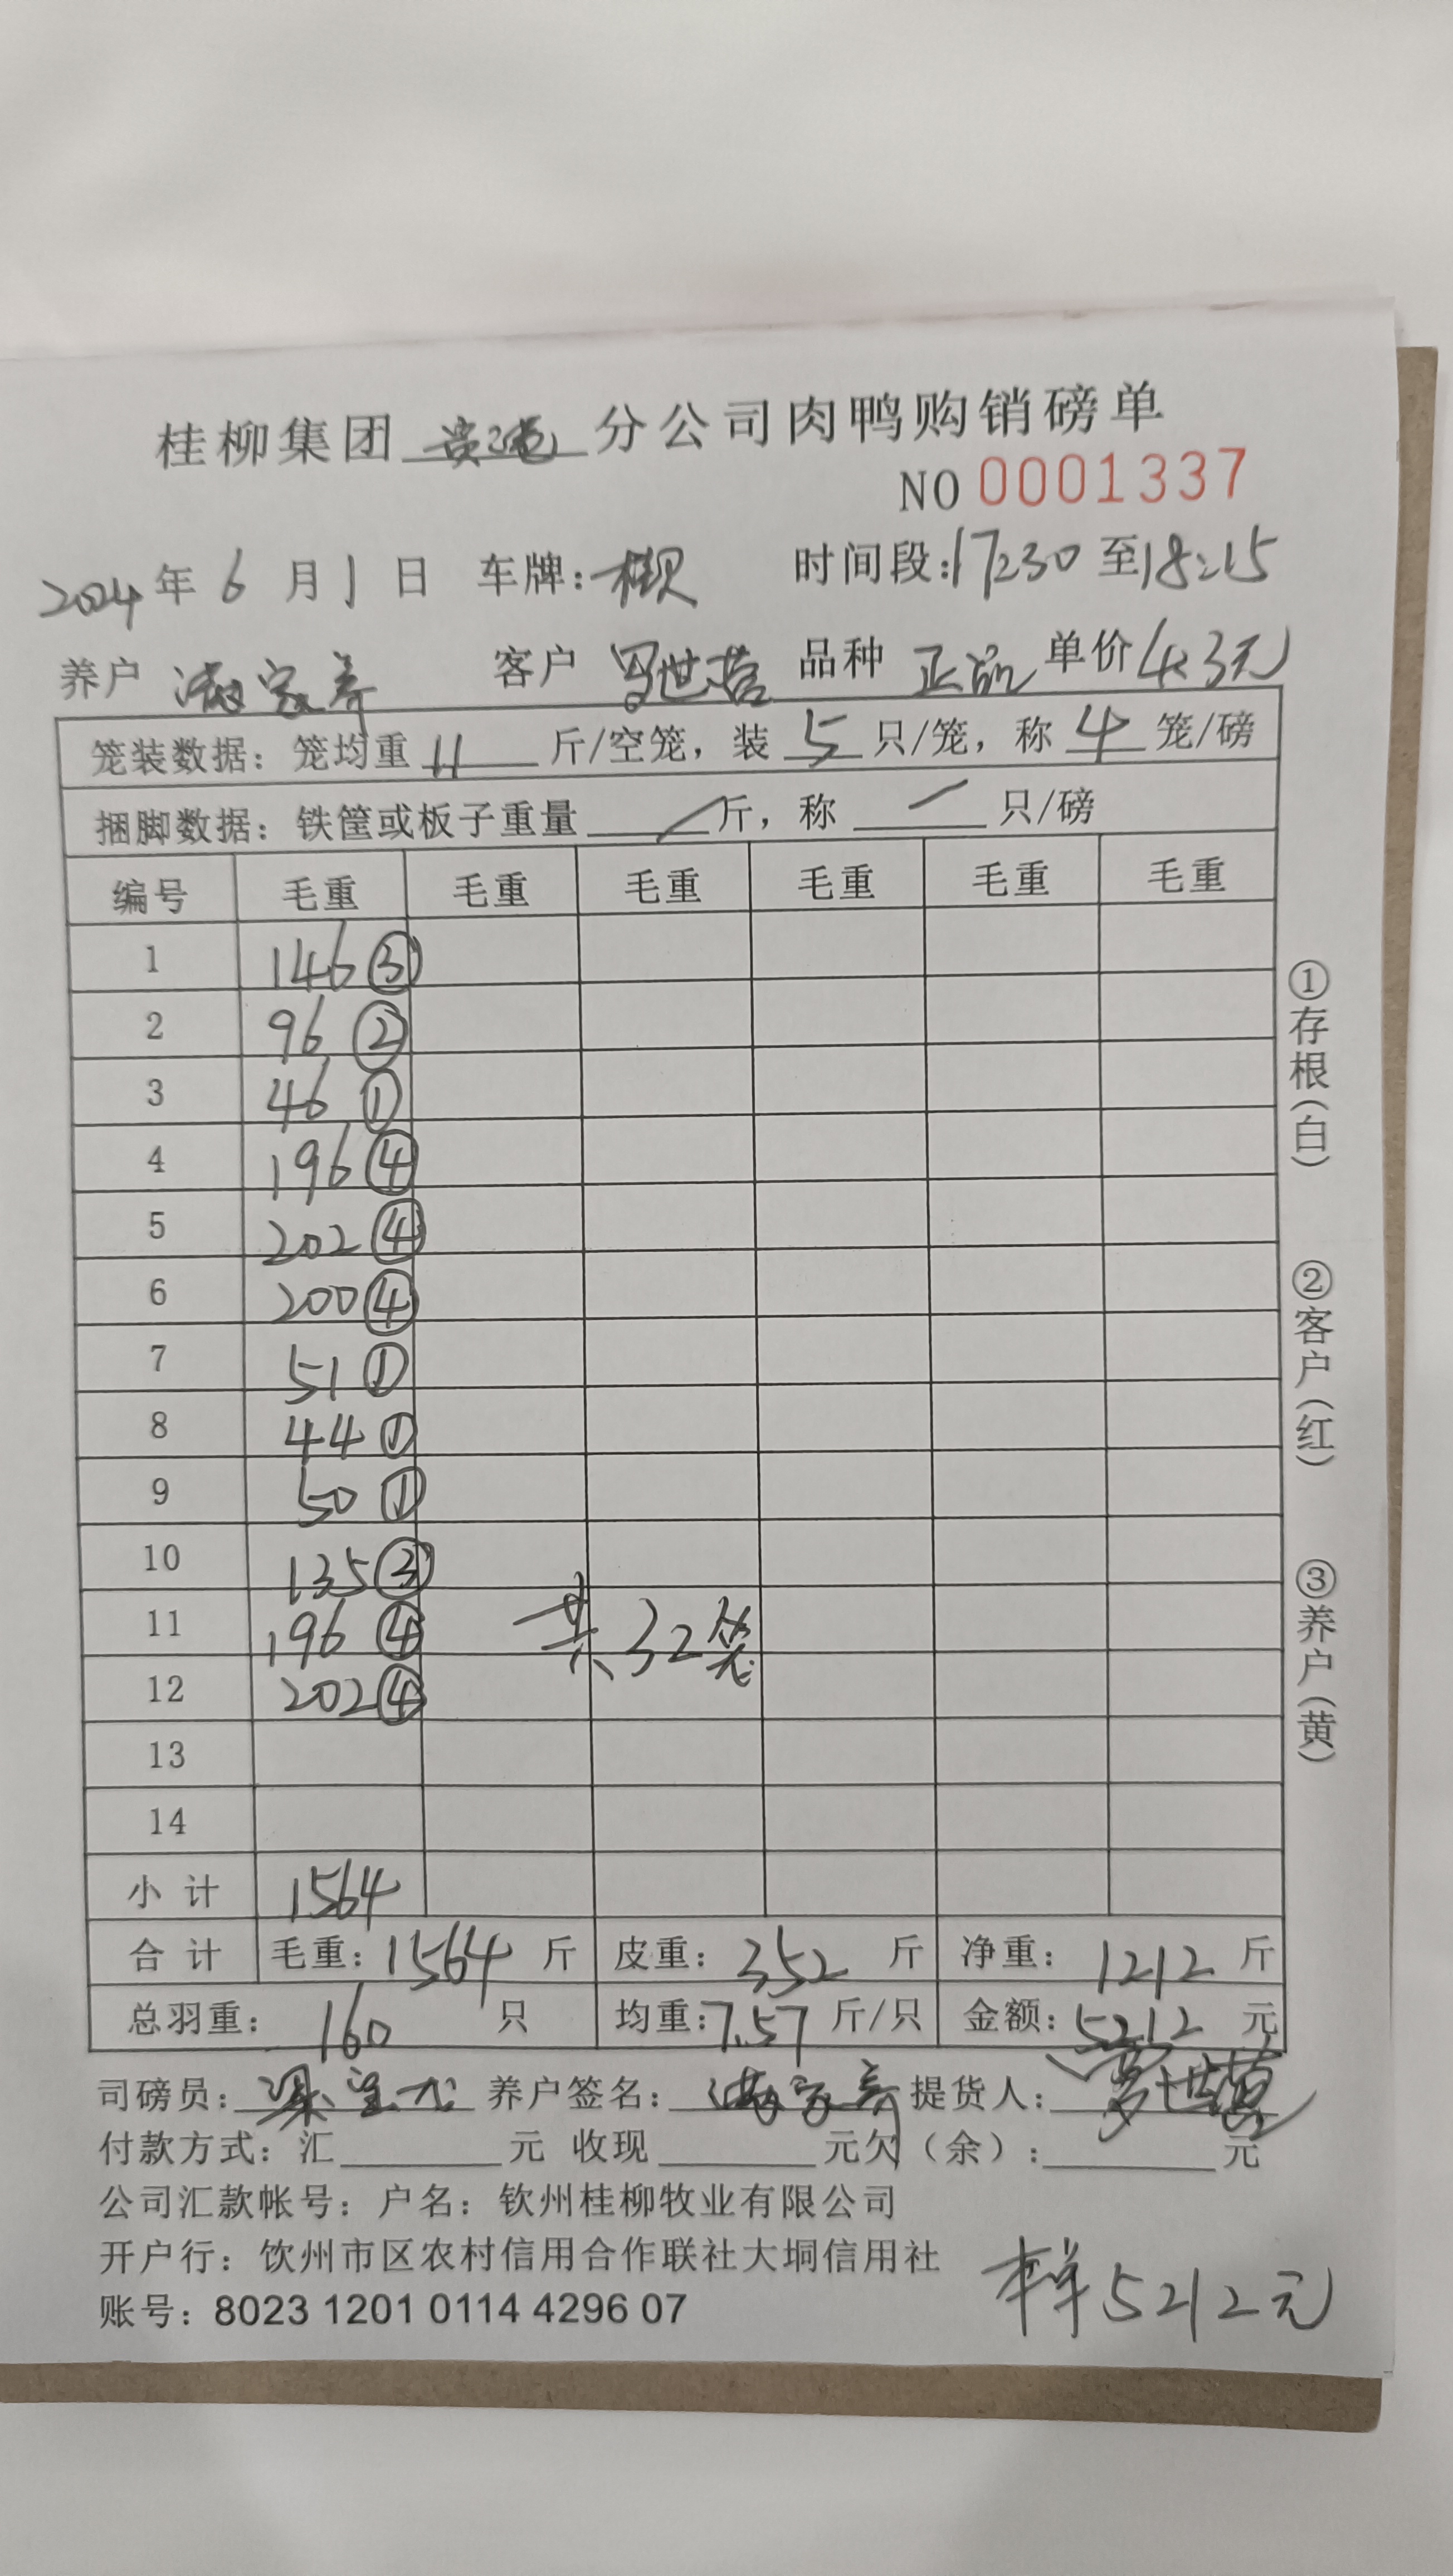 桂柳集团 贵港 分公司肉鸭购销磅单
NO 0001337
2024 年 6 月 1 日 车牌: 时间段:17:30 至18:15
养户 家养 客户 罗世 品种 正品 单价 4.3元
笼装数据: 笼均重 11 斤/空笼, 装 5 只/笼, 称 4 笼/磅
捆脚数据: 铁筐或板子重量 / 斤, 称 / 只/磅
编号 毛重 毛重 毛重 毛重 毛重 毛重
1 146 ③
2 96 ②
3 46 ①
4 196 ④
5 202 ④
6 200 ④
7 51 ①
8 44 ①
9 50 ①
10 135 ③
11 196 ④ 共32笼
12 202 ④
13
14
小 计 1564
合 计 毛重: 1564 斤 皮重: 352 斤 净重: 1212 斤
总羽重: 160 只 均重: 7.57 斤/只 金额: 5212 元
司磅员: 梁 养户签名: 家养 提货人: 罗世
付款方式: 汇 元 收现 元欠(余): 元
公司汇款帐号: 户名: 钦州桂柳牧业有限公司
开户行: 饮州市区农村信用合作联社大垌信用社
账号: 8023 1201 0114 4296 07
5212元
①存根(白)
②客户(红)
③养户(黄)